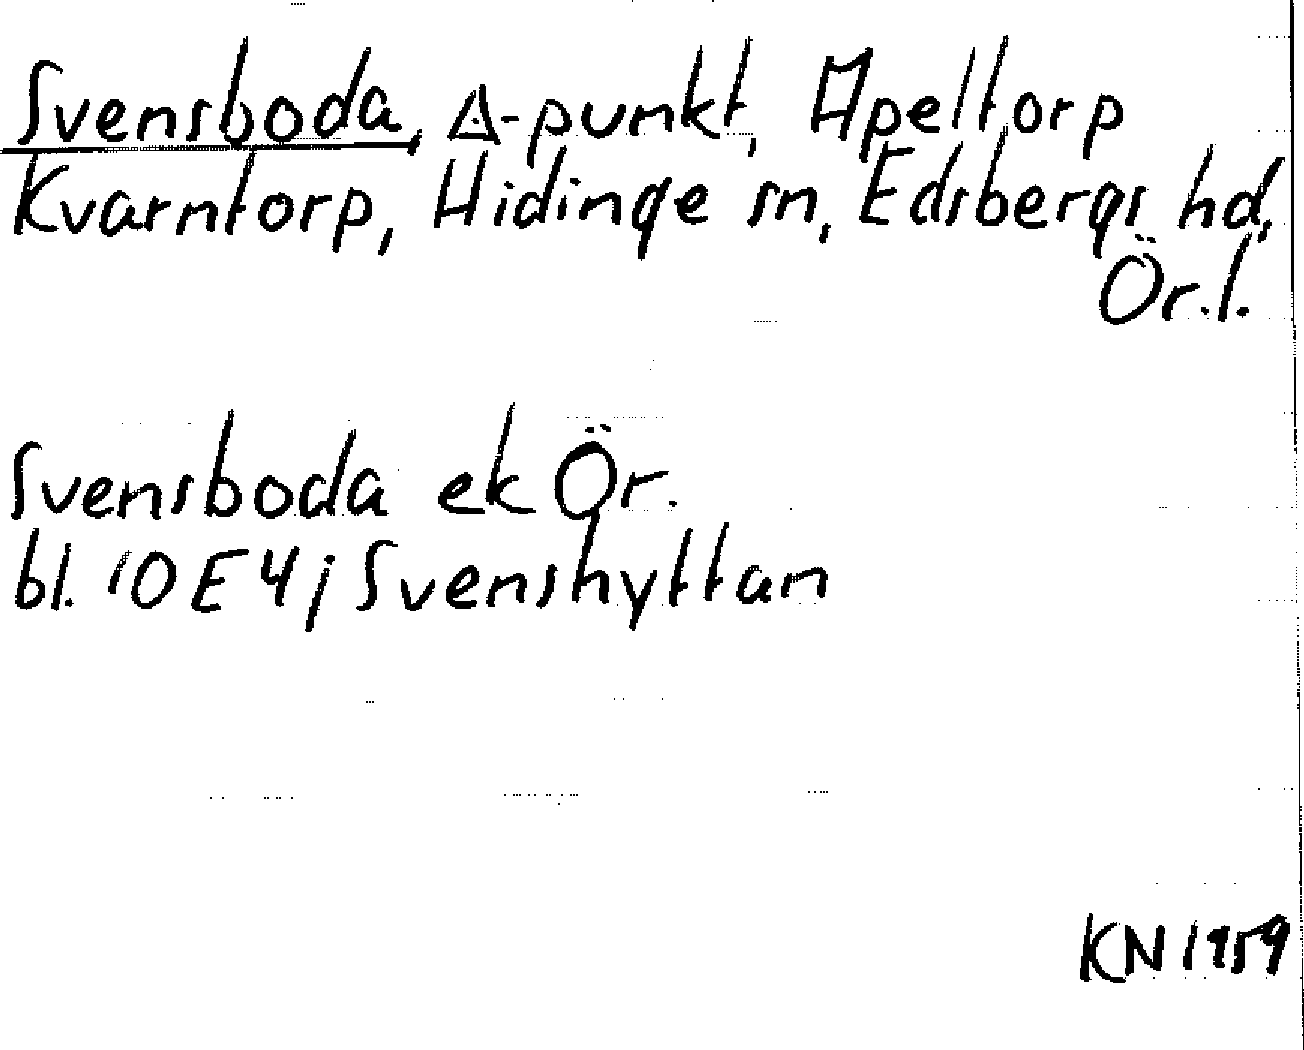 Svensboda, ∆-punkt, Apeltorp
Kvarntorp, Hidinge sn, Edsbergs hd,
Ör.l.
Svensboda ek Ör.
bl. 10E4j Svenshyttan
KN 1959